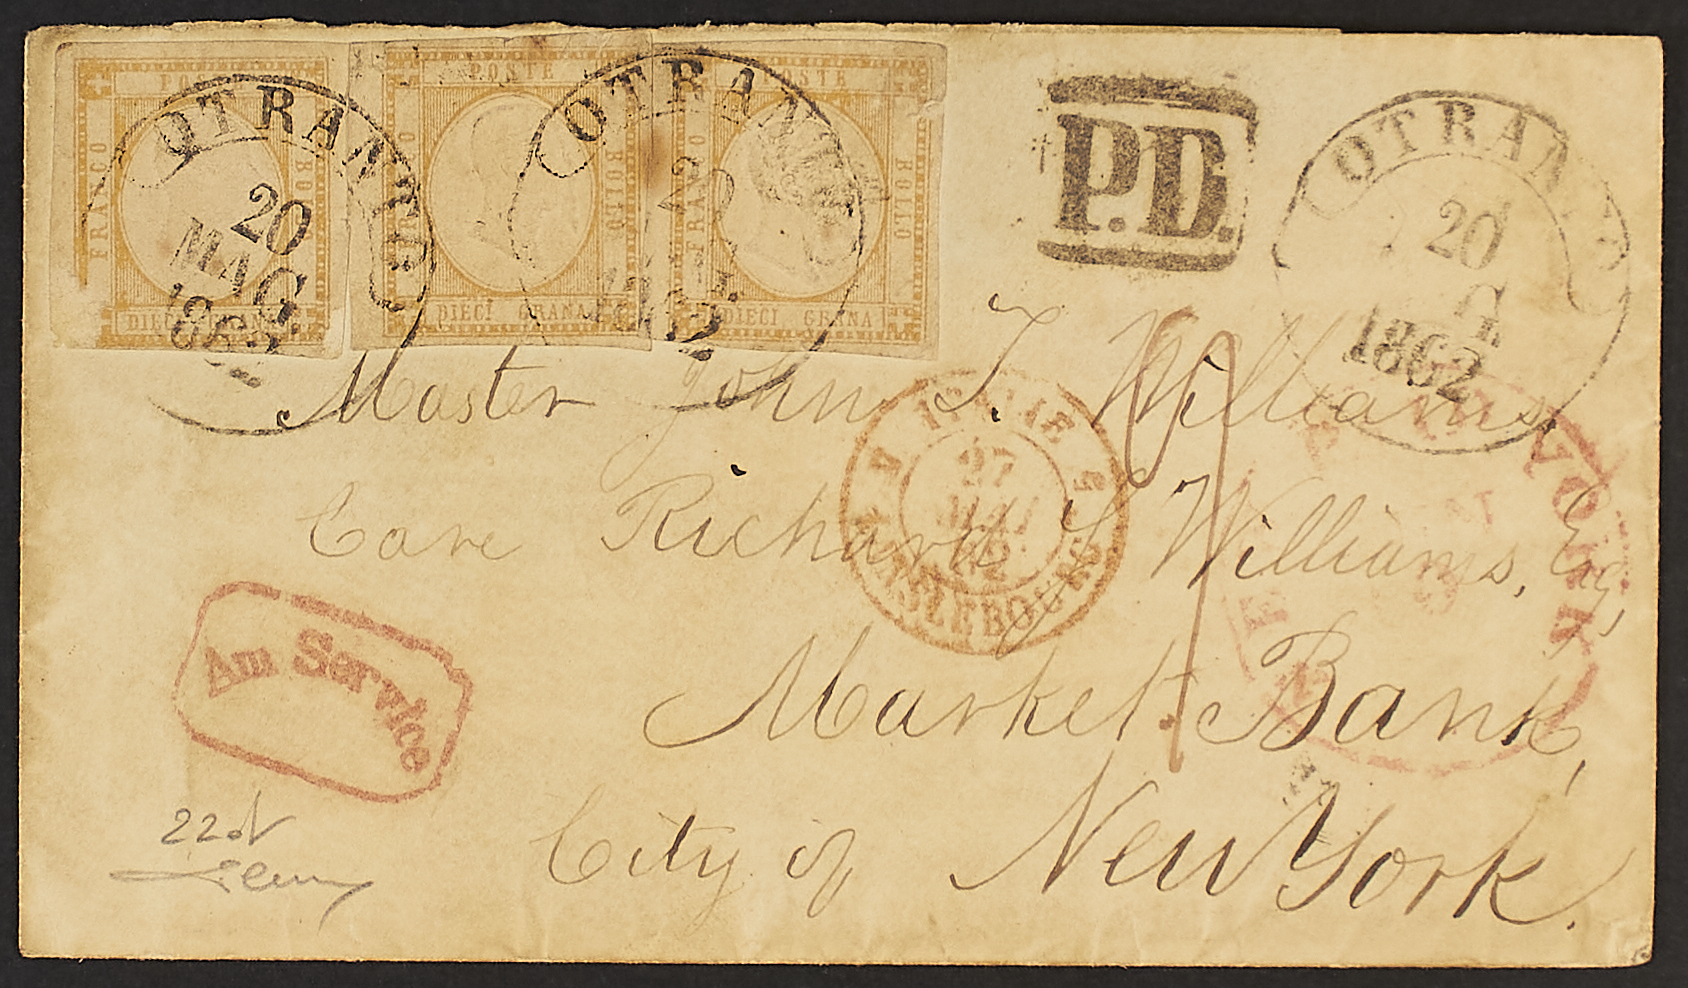 POSTE
FRANCO
BOLLO
DIECI GRANA
OTRANTO
20
MAG
1862
POSTE
BOLLO
DIECI GRANA
OTRANTO
20
POSTE
FRANCO
BOLLO
DIECI GRANA
P.D.
OTRANTO
20
G.
1862
Master John T. Williams,
Care Richard S Williams, Esq,
Market Bank,
City of New York.
ITALIE
27
MAI
62
YORK
Am Service
22